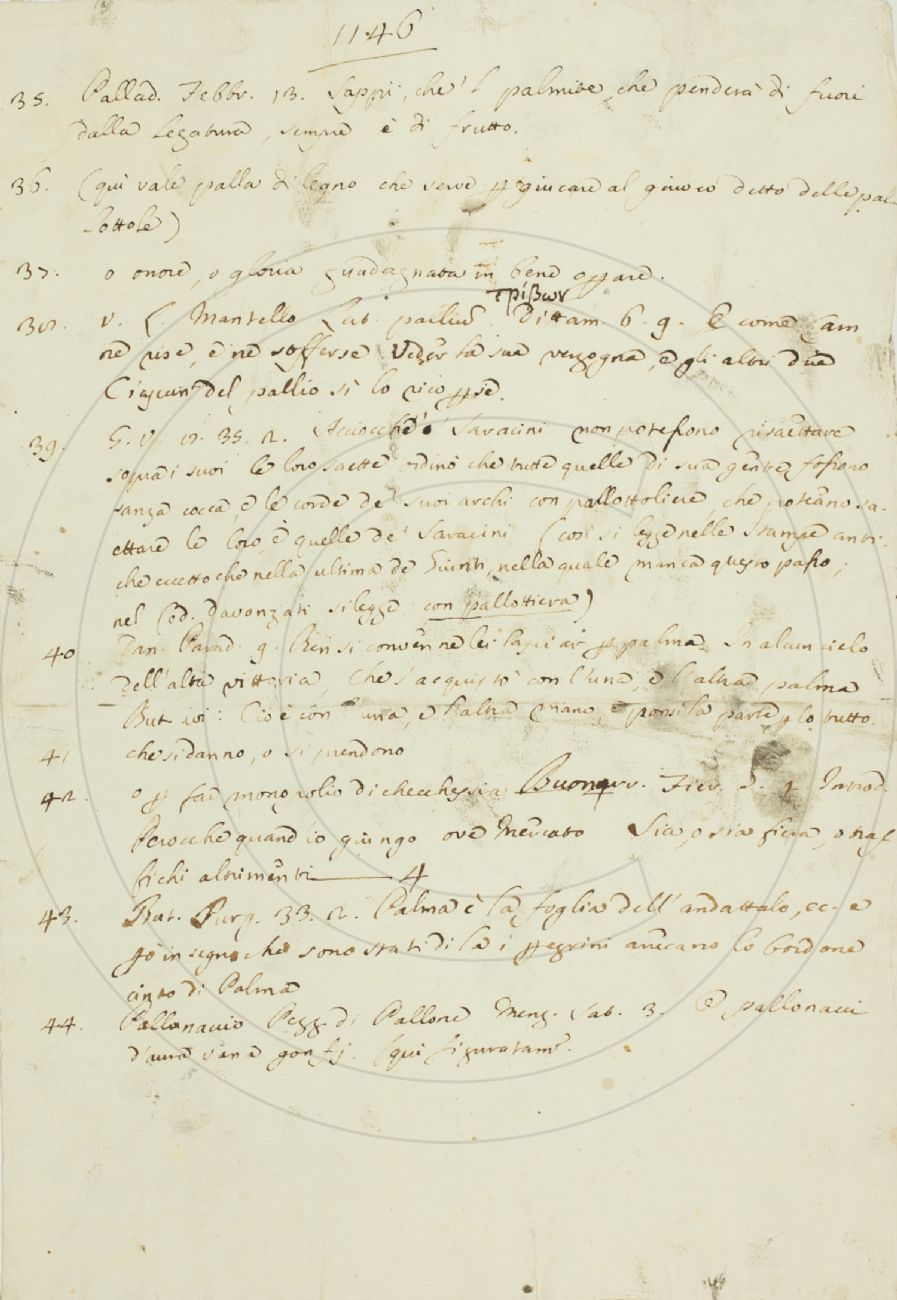 1146
35. Pallad. Febbr. 13. Sappi, che 'l palmite, che penderà di fuori
dalla legatura, sempre è di frutto.
36. (qui vale palla di legno che serve p giucare al giuoco detto delle pal-
lottole)
37. o onore, o gloria guadagnata in bene opare.
τρίβων
38. v. L. Mantello Lat. palliũ. Dittam. 6. 9. E come Cam
ne rise, e ne sofferse Veder la sua vergogna, e gli altri due
Ciascun del pallio sì lo ricopse.
39. G. V. 8. 35. 2. Acciocchè i Saracini non potessono risaettare
sopra i suoi le loro saette ordinò che tutte quelle di sua gente fossono
sanza cocca, e le corde de' suoi archi con pallottoliere, che poteano sa-
ettare le loro, e quelle de' Saracini (così si legge nelle Stampe anti-
che eccetto che nella ultima de' Giunti, nella quale manca questo passo;
nel Cod. Davanzati si legge con pallottiera)
40 Dan. Parad. 9. Ben si convenne lei lasciar p palma In alcun cielo
dell'alta vittoria, Che s'acquistò con l'una, e l'altra palma
But. ivi: Cioè con l'una, e l'altra mano, e ponsi la parte p lo tutto.
41 che si danno, o si prendono
42. o p far monopolio di checchessia Buonarr. Fier. 3. 1. Introd.
Perocchè quand'io giungo ove Mercato Sia, o sia fiera, o traf
fichi altrimenti 4
43. But. Purg. 33. 2. Palma è la foglia dell'andattalo, ec. e
pò in segno che sono stati di là i pegrini arrecano lo bordone
cinto di Palma
44. Pallonaccio Pegg. di Pallone Menz. Sat. 3. E pallonacci
d'aura vana gonfj. (qui figuratam.